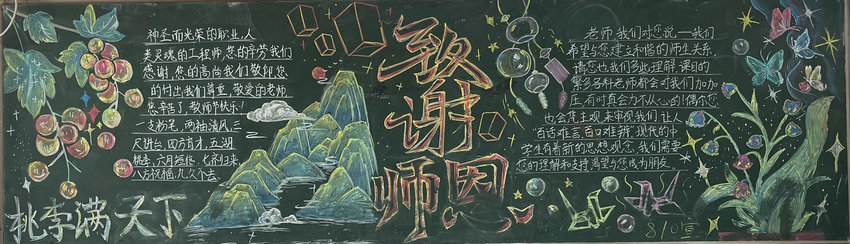 神圣而光荣的职业,人
类灵魂的工程师,您的辛劳我们
感谢,您的高尚我们敬仰,您
的付出我们尊重,敬爱的老师
您辛苦了,教师节快乐!
一支粉笔,两袖清风,三
尺讲台,四方育才,五湖
桃李,六月短信,七彩归来
八方祝福,九久个去
桃李满天下
致谢师恩
老师,我们对您说,一我们
希望与您建立和谐的师生关系,
请您也我们多些理解,课目的
繁多各科老师都会对我们加加
压,有时真会力不从心的!偶尔您
也会凭主观来审视我们,让人
百话难言,百口难辨,现代的中
学生有着新的思想观念,我们需要
您的理解和支持,渴望与您成为朋友
810宣